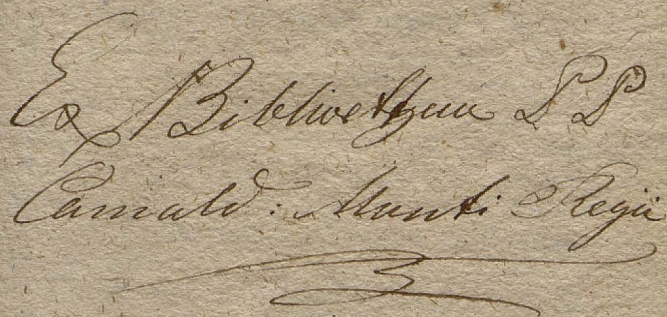 Ex Bibliothecae PP
Camald: Monti Regii